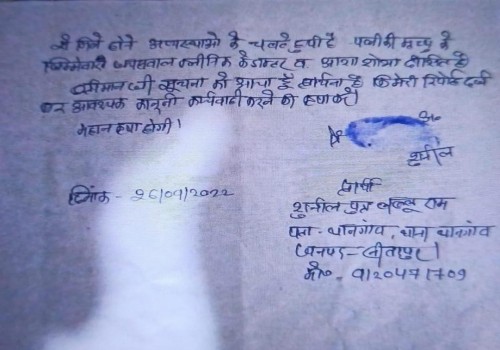 से मिले होने अव्यवस्थाओ के चलते हुयी है पत्नी की मृत्यु के
जिम्मेवारी जयसवाल क्लीनिक के डाक्टर व आशा शोभा दीक्षित है
श्रीमान जी सूचना को आया है प्रार्थना है कि मेरी रिपोर्ट दर्ज
कर आवश्यक कानूनी कार्यवाही करने की कृपा करें
महान कृपा होगी।
सुनील
दिनांक - 26/04/2022
प्रार्थी
सुनील पुत्र लल्लू राम
पता - थानगांव, थाना थानगांव
जनपद - सीतापुर।
मो० - 9120471709